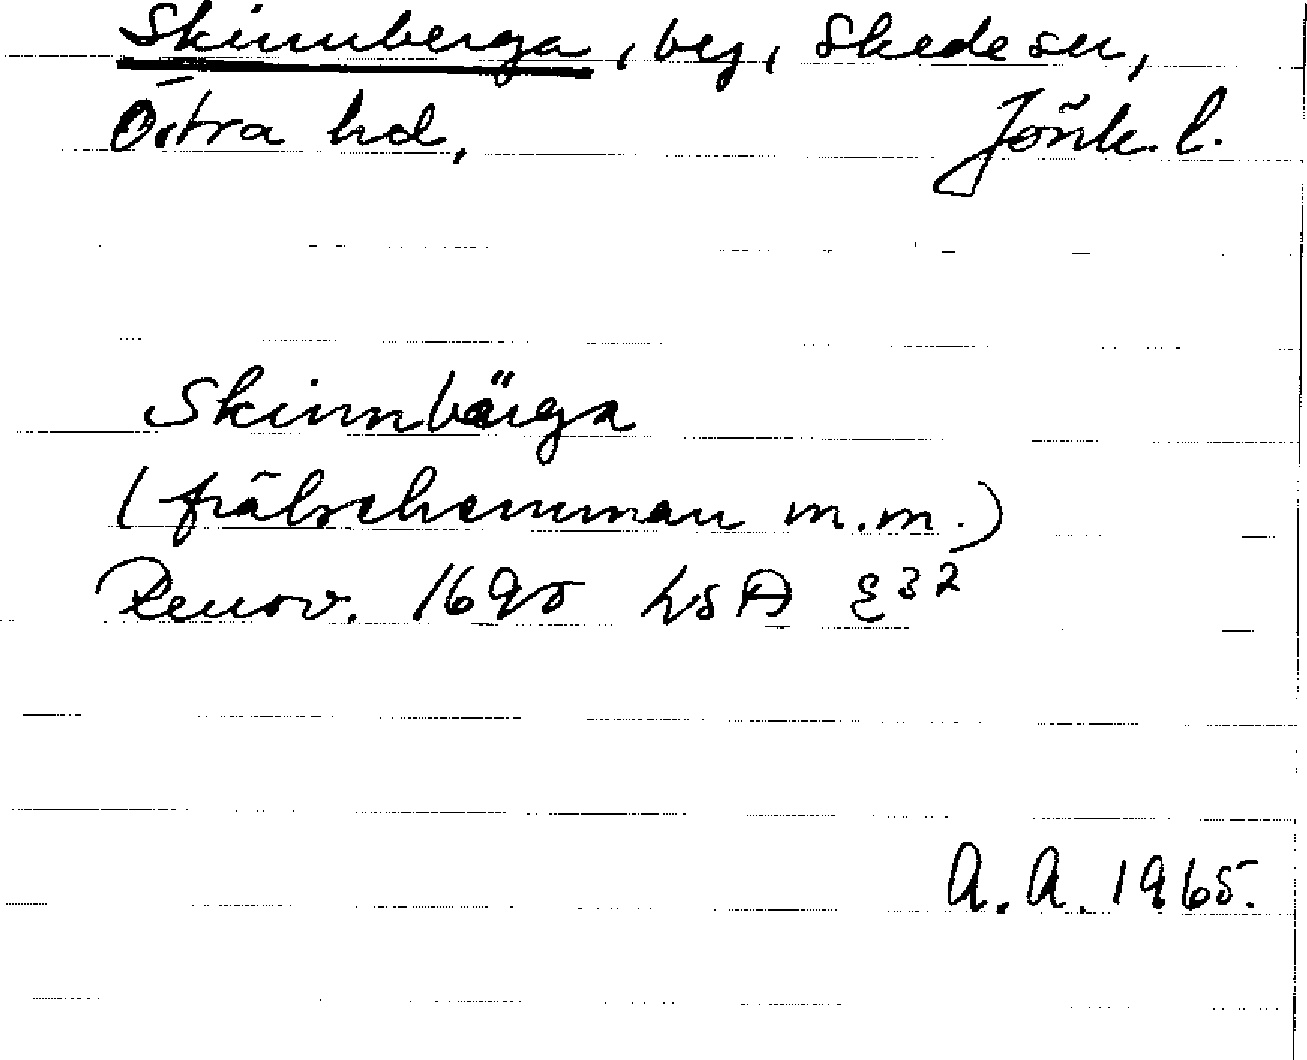 Skinnberga, beg, Skede sn,
Östra hd, Jönk. l.
Skinnbärga
(frälsehemman m.m.)
Renov. 1690 LSA E32
A.A. 1965.